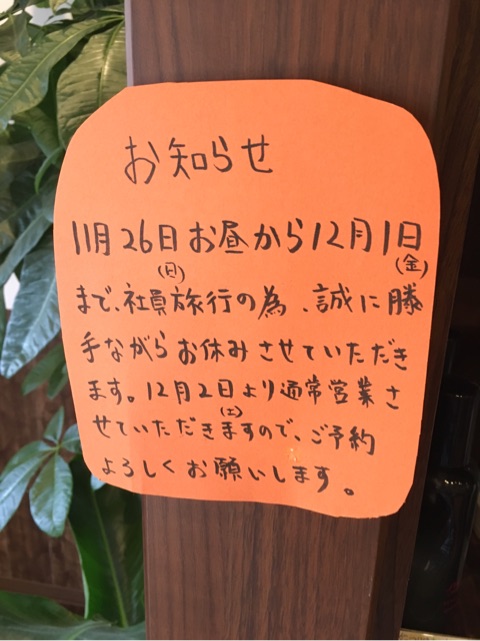 お知らせ
11月26日お昼から12月1日
(日)
(金)
まで、社員旅行の為、誠に勝
手ながらお休みさせていただき
ます。12月2日より通常営業さ
(土)
せていただきますので、ご予約
よろしくお願いします。